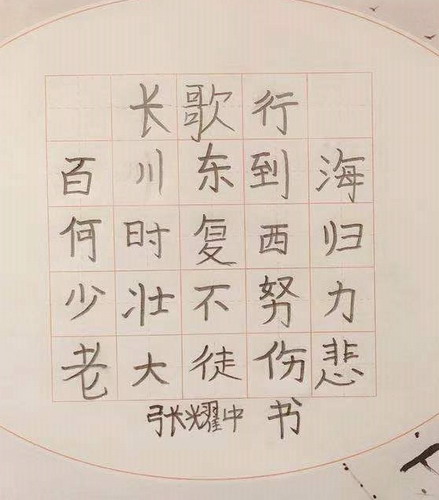 长歌行
百川东到海
何时复西归
少壮不努力
老大徒伤悲
张耀中 书